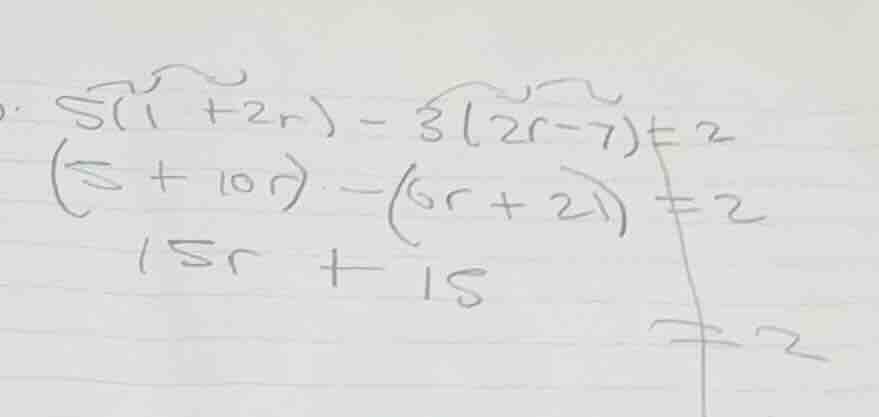 5(1 + 2r) - 3(2r - 7) = 2
(5 + 10r) - (6r + 21) = 2
15r + 15
= 2